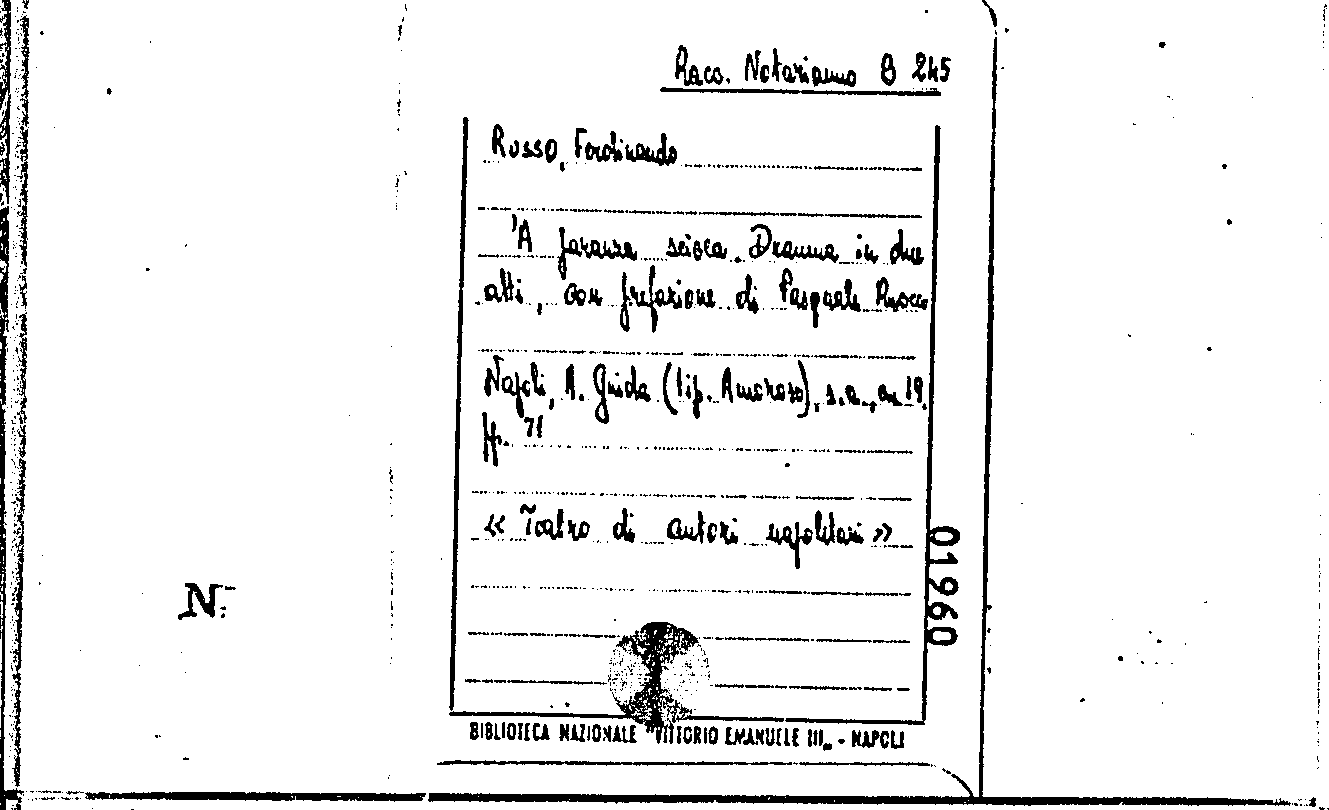 Racc. Notarianno B 245
Russo, Ferdinando
'A paranza scicca. Dramma in due
atti, con prefazione di Pasquale Ruocco
Napoli, A. Guida (tip. Amoroso), s.a., in 19.
pp. 71
« Teatro di autori napoletani »
01960
N.
BIBLIOTECA NAZIONALE "VITTORIO EMANUELE III„ - NAPOLI